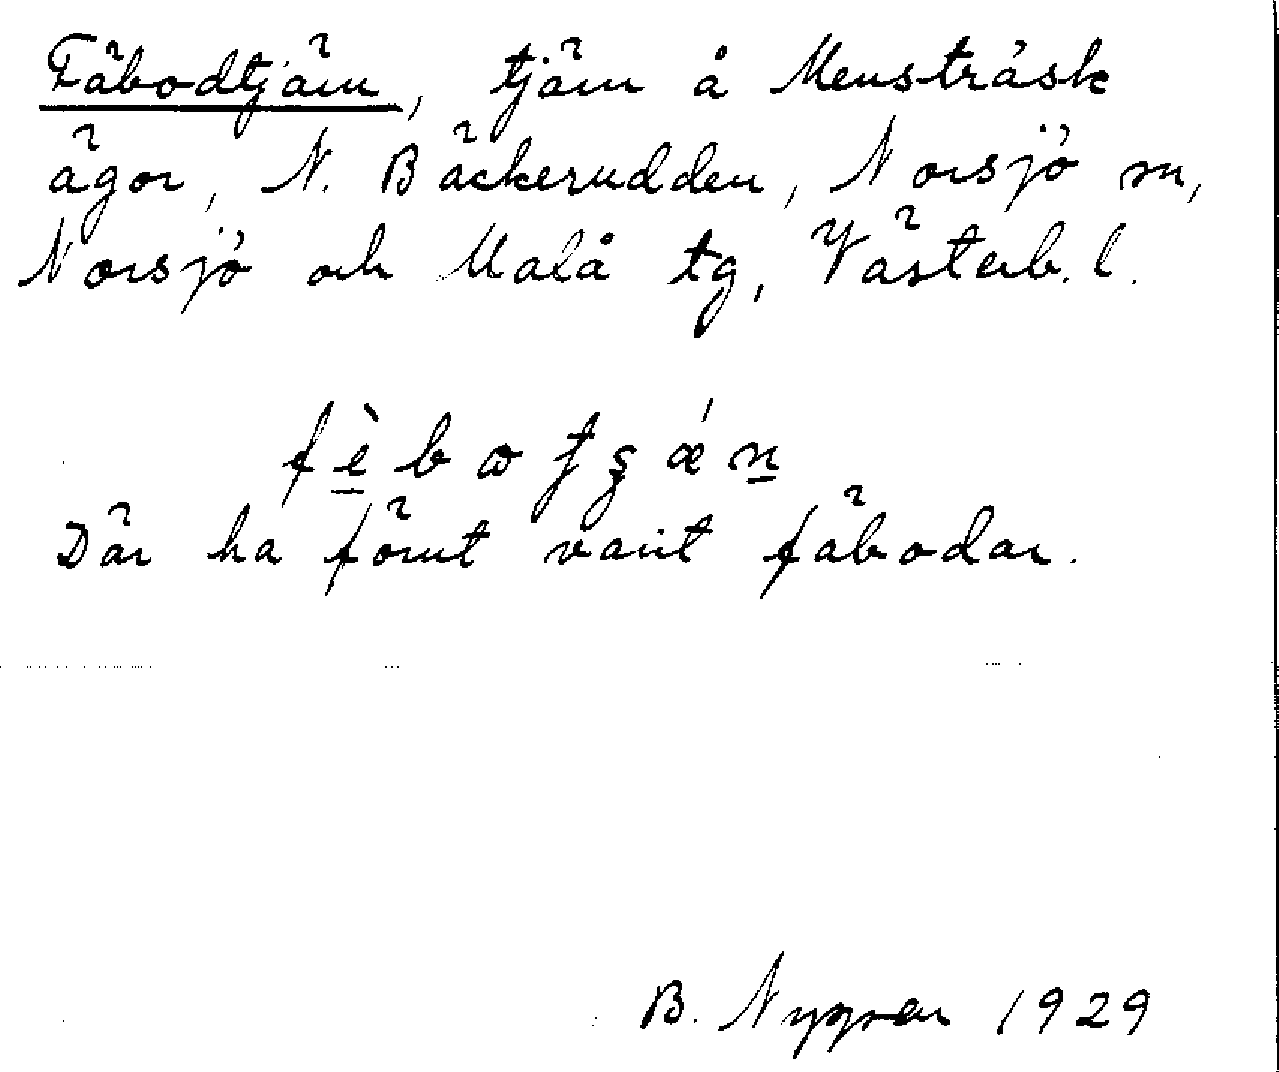 Fäbodtjärn, tjärn å Mensträsk
ägor, N. Bäckerudden, Norsjö sn,
Norsjö och Malå tg, Västerb. l.
Där ha förut varit fäbodar.
B. Nygren 1929